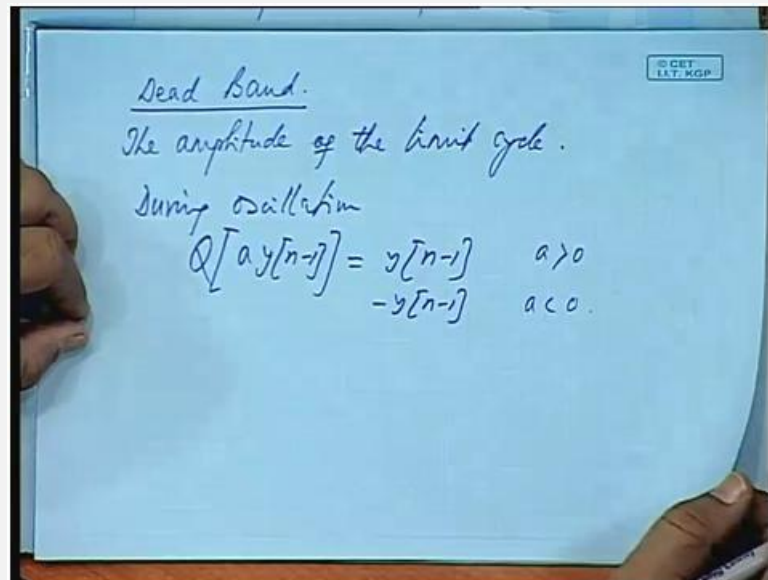 © CET
I.I.T. KGP
Dead Band.
The amplitude of the limit cycle.
During oscillation
Q[a y[n-1]] = y[n-1] a>0
-y[n-1] a<0.